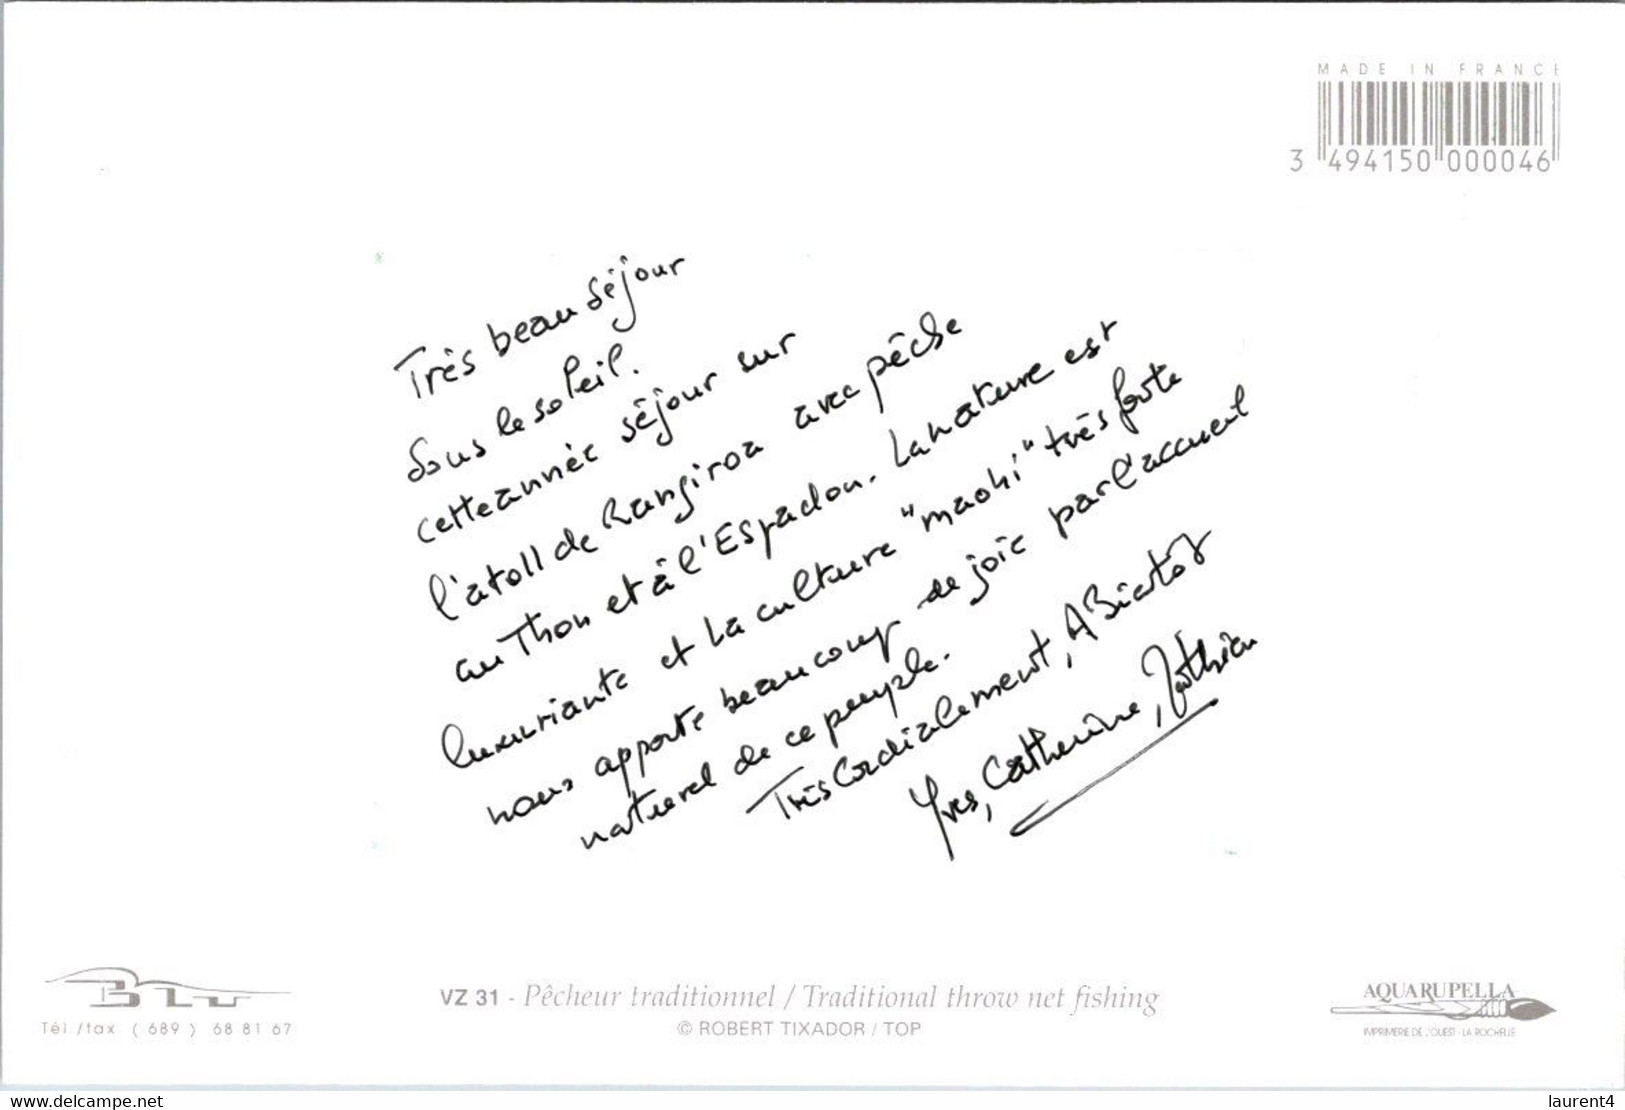 MADE IN FRANCE
3 494150 000046
Très beau séjour
sous le soleil.
cette année séjour sur
l'atoll de Rangiroa avec pêche
au Thon et à l'Espadon. La nature est
luxuriante et la culture "maohi" très forte
nous apporte beaucoup de joie par l'accueil
naturel de ce peuple.
Très Cordialement, A Bientôt
Yves, Catherine,
BLU
Tél./fax (689) 68 81 67
VZ 31 - Pêcheur traditionnel / Traditional throw net fishing
© ROBERT TIXADOR / TOP
AQUARUPELLA
IMPRIMERIE DE L'OUEST - LA ROCHELLE
www.delcampe.net
laurent4